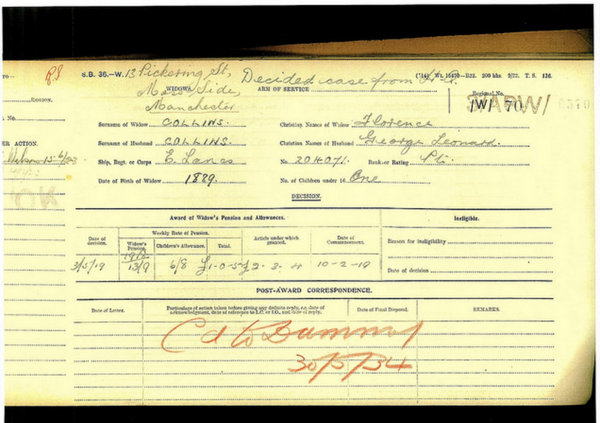 S.B. 36.—W. 13 Pickering St,
Moss Side,
Manchester
Decided case from
WIDOWS
ARM OF SERVICE
Regional No.
/W/ 70
Surname of Widow COLLINS. Christian Names of Widow Florence
Surname of Husband COLLINS. Christian Names of Husband George Leonard
Ship, Regt. or Corps E. Lancs No. 201071. Rank or Rating Pte.
Date of Birth of Widow 1889. No. of Children under 16 One
DECISION.
Award of Widow's Pension and Allowances.
Ineligible.
Date of decision.
Weekly Rate of Pension.
Widow's Pension.
Children's Allowance.
Total.
Article under which granted.
Date of Commencement.
Reason for ineligibility
Date of decision
3/5/19 13/9 6/8 £1-0-5 10-2-19
POST-AWARD CORRESPONDENCE.
Date of Letter.
Particulars of action taken before giving any definite reply, i.e. date of acknowledgment, date of reference to L.C. or I.O., and date of reply.
Date of Final Disposal.
REMARKS.
30/5/34
ACTION.
OK